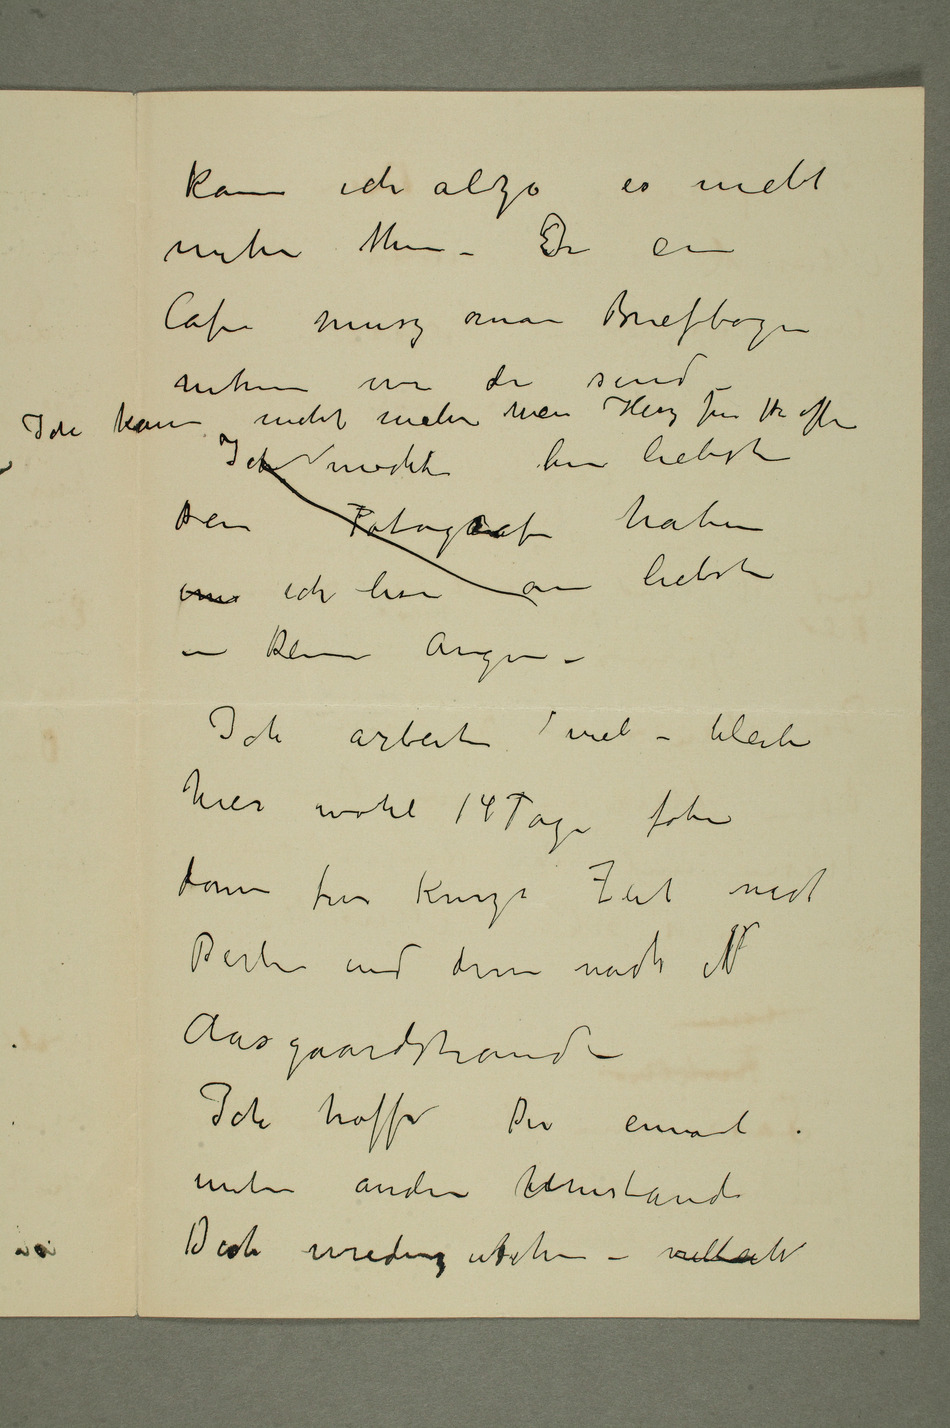 kann ich alzo es nicht
mehr thun – In ein
Cafe musz man Briefbogen
nehmen wie die sind –
Ich kann nicht mehr mein Herz für Dir öffn
Ich möchte am liebsten
Dein Fotografi haben
ich lese am liebsten
in Deine Augen –
Ich arbeite viel – bleibe
hier wohl 14 Tage fahre
dann für kurze Zeit nach
Berlin und dann nach N
Aasgaardstrand –
Ich hoffe Du einmal
unter andere Umstände
Dich wiederzusehen – vielleicht